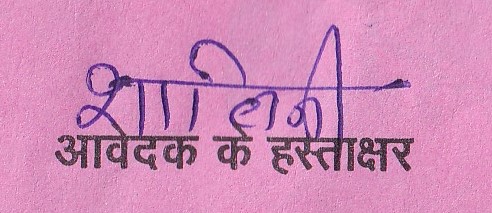 शालिनी
आवेदक के हस्ताक्षर